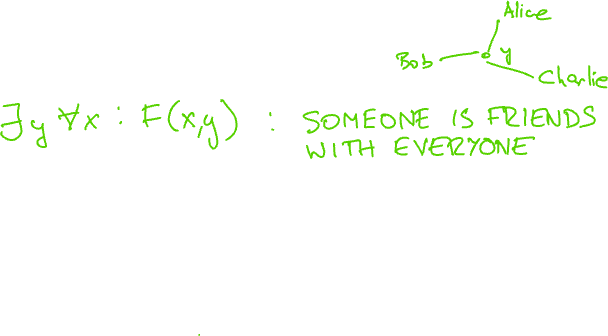 Alice
Bob
y
Charlie
∃y ∀x : F(x,y) : SOMEONE IS FRIENDS
WITH EVERYONE